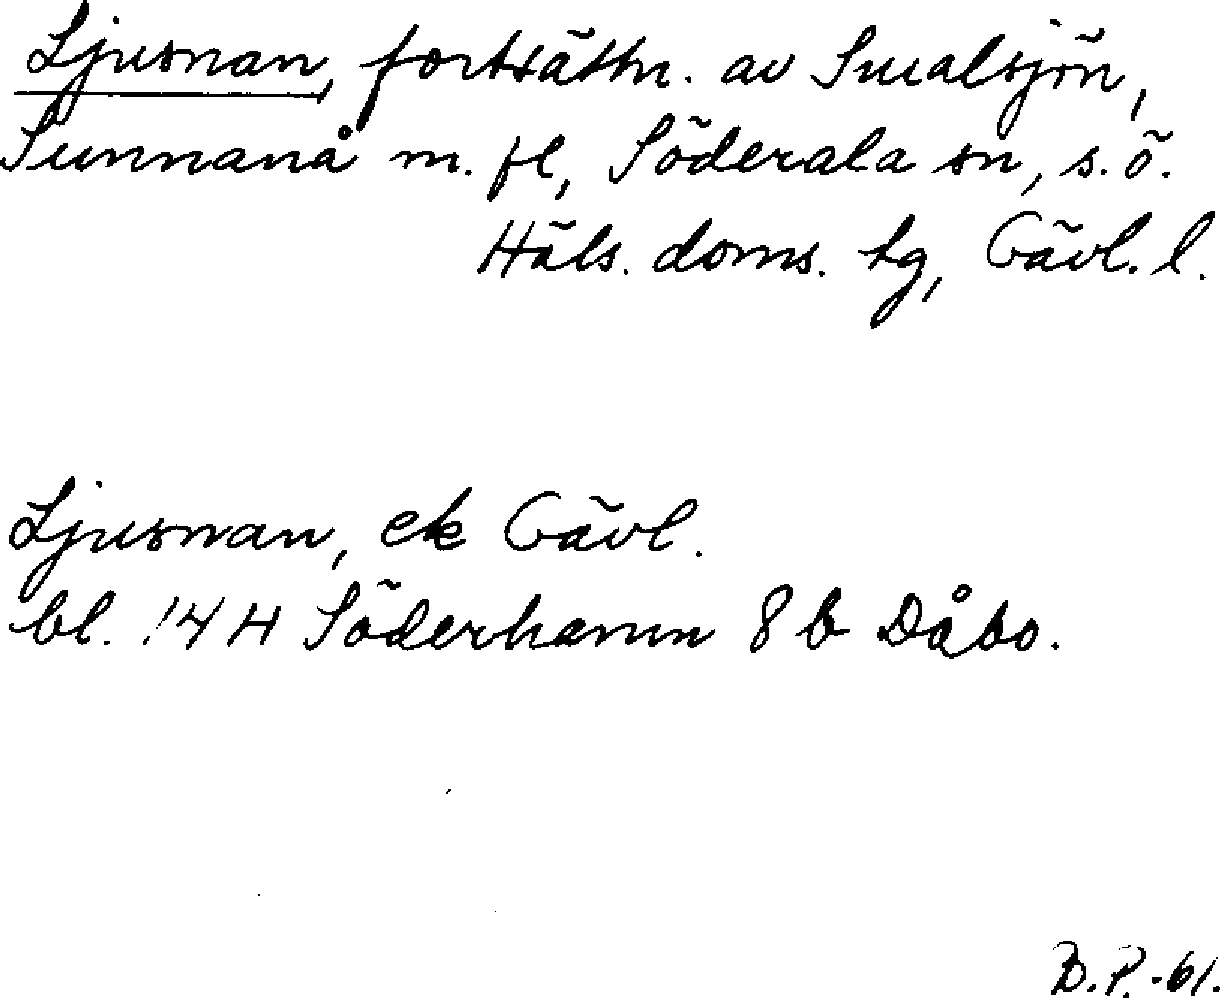 Ljusnan, fortsättn. av Smalsjön,
Sunnanå m. fl, Söderala sn, s. ö.
Häls. doms. tg, Gävl. l.
Ljusnan, ek Gävl.
bl. 14 H Söderhamn 8 b Dåbo.
B.P.-61.